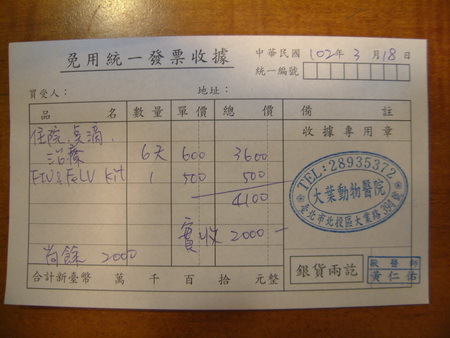 免用統一發票收據
中華民國102年3月18日
統一編號
買受人： 地址：
品名 數量 單價 總價 備註
收據專用章
住院、点滴、
治療 6天 600 3600
FIV&FeLV Kit 1 500 500
4100
實收 2000-
尚餘 2000
TEL:28935372
大葉動物醫院
臺北市北投區大業路394號
銀貨兩訖
獸醫師
黃仁佑
合計新臺幣 萬 千 百 拾 元整